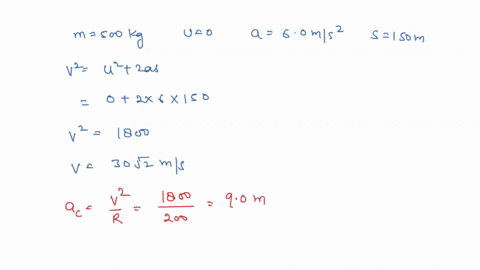 m = 500 kg u = 0 a = 6.0 m/s² S = 150 m
v² = u² + 2as
= 0 + 2×6×150
v² = 1800
v = 30√2 m/s
a_c = v²/R = 1800/200 = 9.0 m